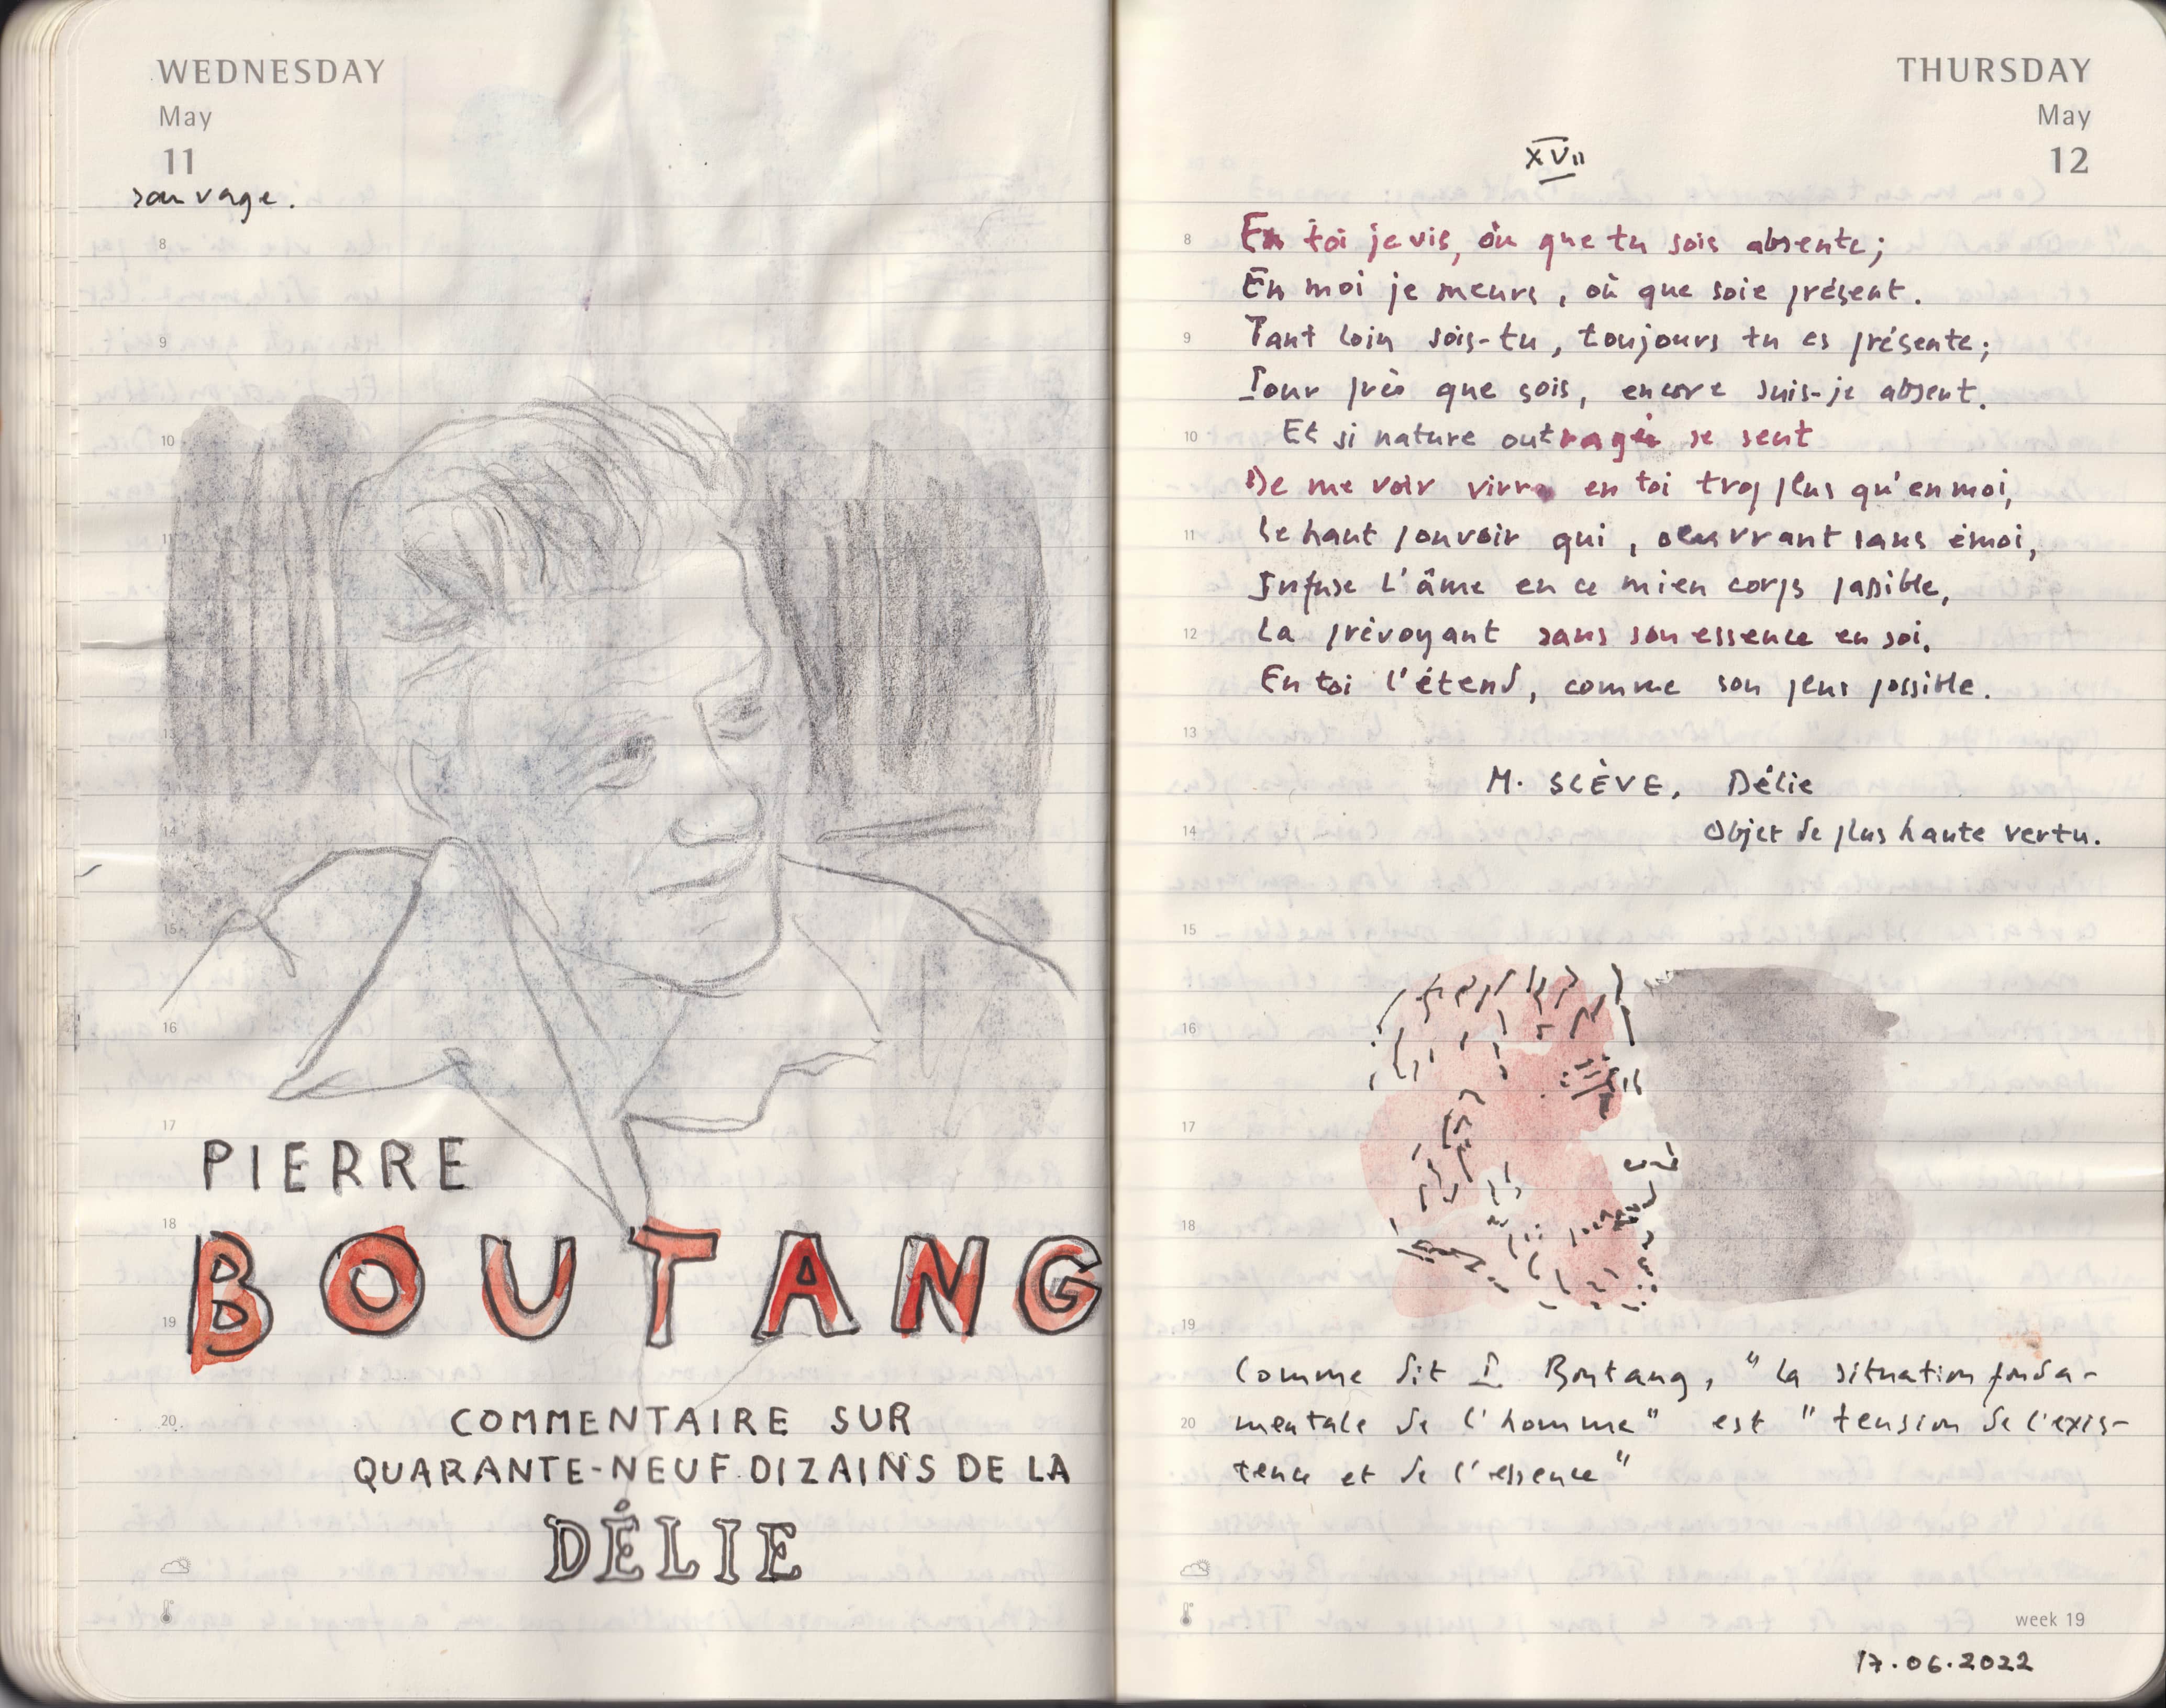 WEDNESDAY
May
11
sauvage.
8
9
10
11
13
14
15
16
17
PIERRE
18
BOUTANG
19
COMMENTAIRE SUR
20
QUARANTE-NEUF DIZAINS DE LA
DÉLIE
THURSDAY
May
12
XVII
8 En toi je vis, où que tu sois absente;
En moi je meurs, où que soie présent.
9 Tant loin sois-tu, toujours tu es présente;
Pour près que sois, encore suis-je absent.
10 Et si nature outragée se sent
De me voir vivre en toi trop plus qu'en moi,
11 Le haut pouvoir qui, œuvrant sans émoi,
Infuse l'âme en ce mien corps passible,
12 La prévoyant sans son essence en soi,
En toi l'étend, comme son plus possible.
13
M. SCÈVE, Délie
14 Objet de plus haute vertu.
15
16
17
18
19
Comme dit P. Boutang, "la situation fonda-
20 mentale de l'homme" est "tension de l'exis-
tence et de l'essence"
week 19
17.06.2022